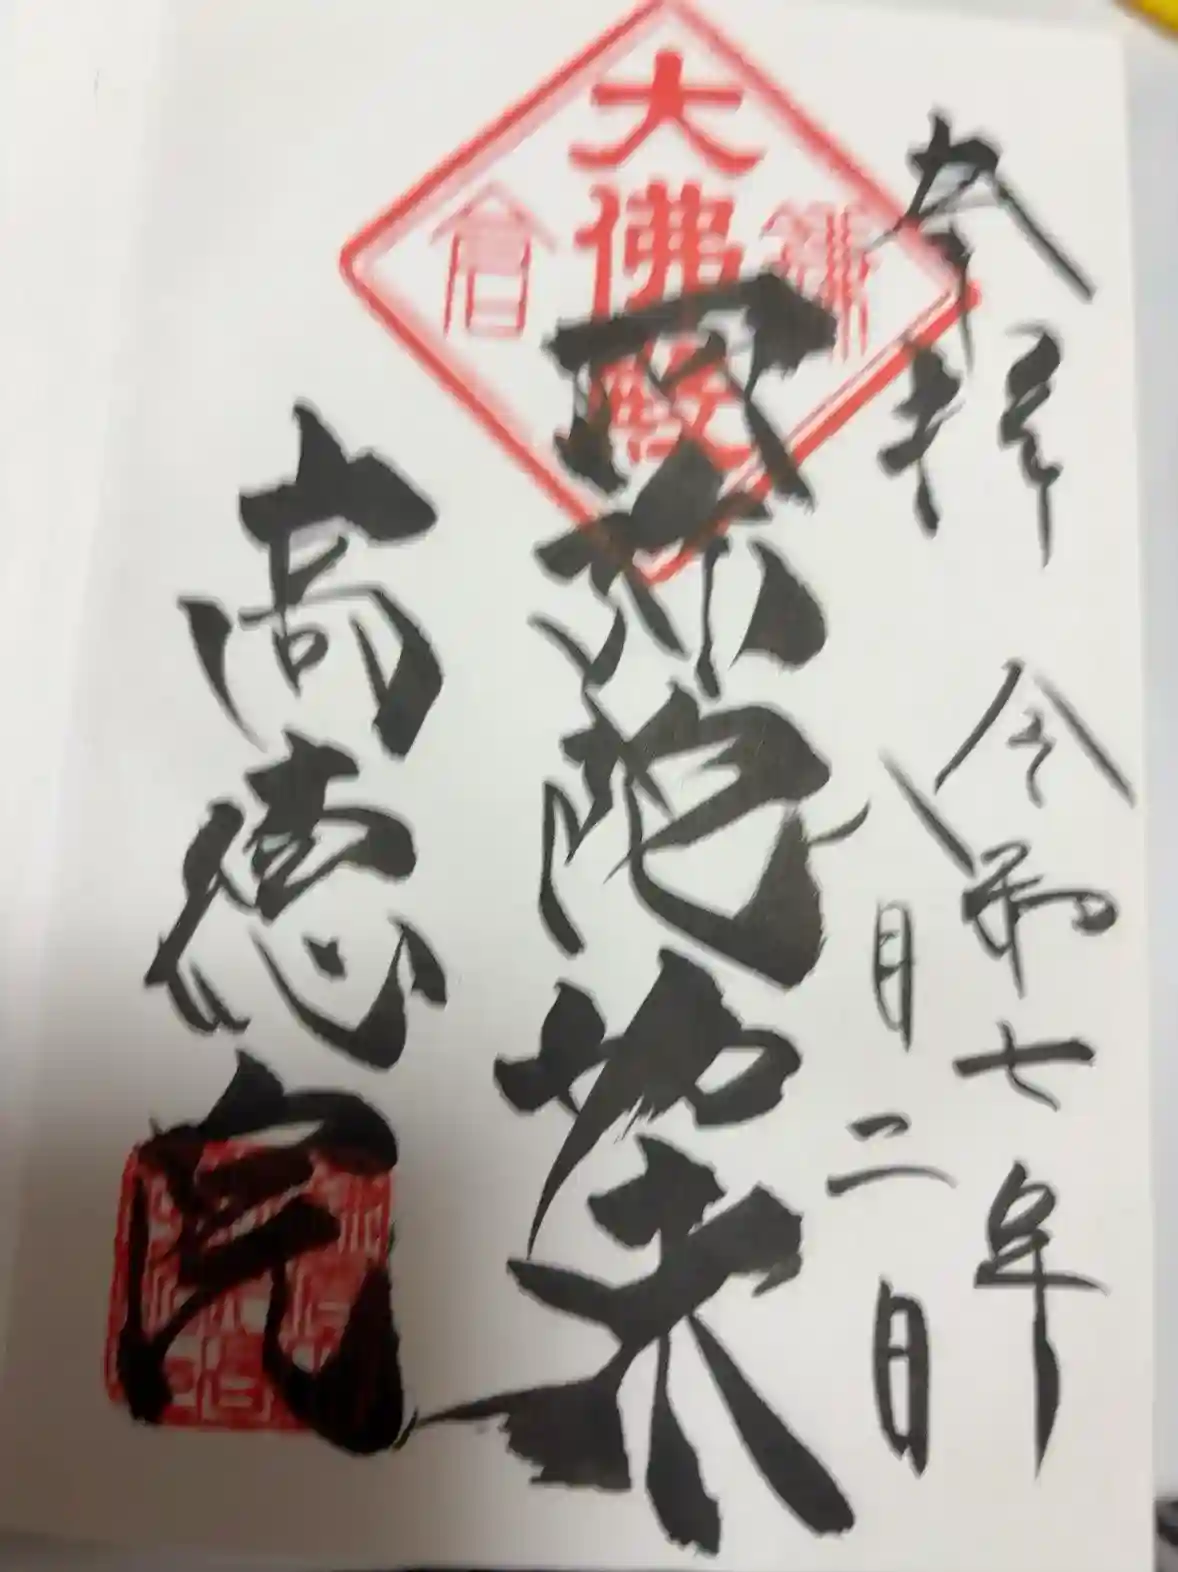 奉拝 令和七年
月二日
鎌倉
大佛殿
阿弥陀如来
高徳院